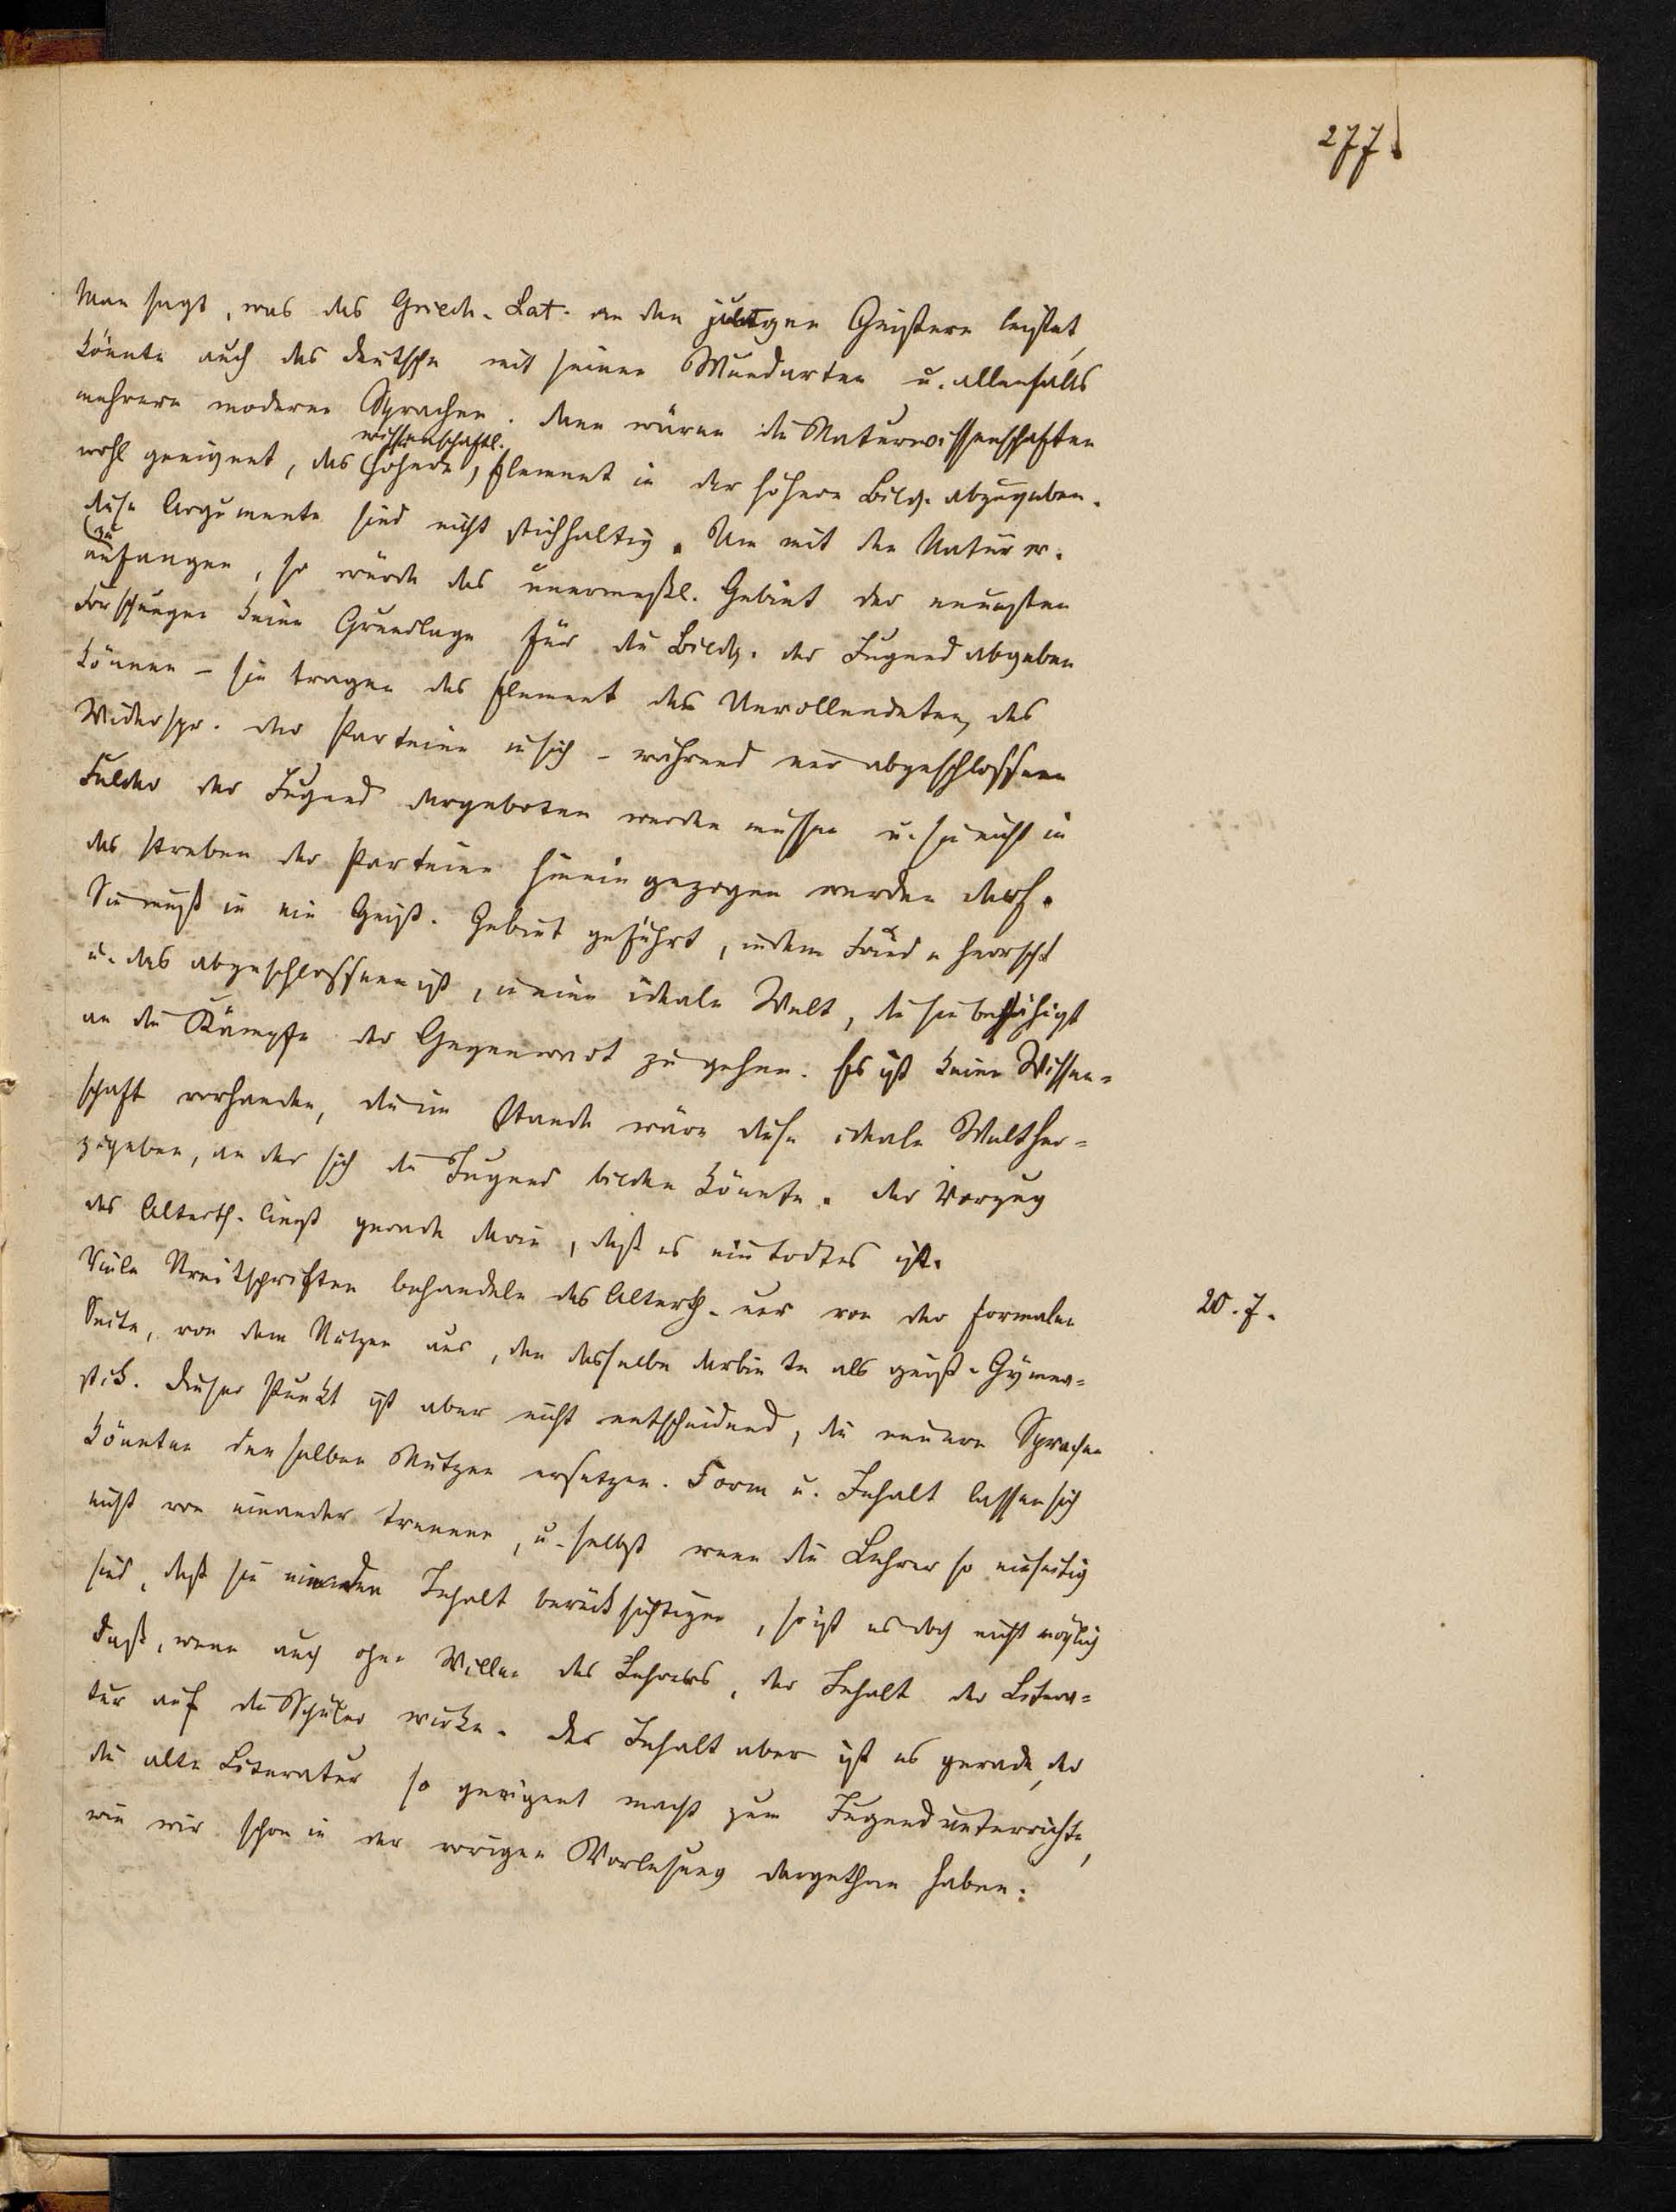 277
Man sagt, was das Griech. Lat. an den jetzigen Geistern leistet,
könnte auch das deutsche mit seinen Mundarten u. allenfalls
mehrere moderne Sprachen. dann wären die Naturwissenschaften
wissenschaftl.
wohl geeignet, das höhere, Element in der höhern Bildg. abzugeben.
diese Argumente sind nicht stichhaltig. Um mit den Naturw.
zu
anfangen, so würde das unermeßl. Gebiet der neuesten
Forschungen keine Grundlage für die Bildg. der Jugend abgeben
können – sie tragen das Element des Unvollendeten, des
Widerspr. der Parteien in sich – während nur abgeschlossene
Felder der Jugend dargeboten werden müssen u. sie nicht in
das Streben der Parteien hineingezogen werden darf.
Sie muß in ein Geist. Gebiet geführt, in dem Friede herrscht
u. das abgeschlossen ist, in eine ideale Welt, die sie befähigt
an die Kämpfe der Gegenwart zu gehen. Es ist keine Wissen=
schaft vorhanden, die im Stande wäre diese ideale Welt her=
zugeben, an der sich die Jugend bilden könnte. der Vorzug
des Alterth. liegt gerade darin, daß es ein todtes ist.
Viele Streitschriften behandeln das Alterth. nur von der formalen
20. 7.
Seite, von dem Nutzen aus, den dasselbe darbiete als geist. Gymna=
stik. dieser Punkt ist aber nicht entscheidend, die neuern Sprachen
könnten denselben Nutzen ersetzen. Form u. Inhalt lassen sich
nicht von einander trennen, u. selbst wenn die Lehrer so einseitig
sind, daß sie nie den Inhalt berücksichtigen, so ist es doch nicht möglich
daß, wenn auch ohne Willen des Lehrers, der Inhalt der Litera=
tur auf die Schüler wirke. der Inhalt aber ist es gerade, der
die alte Literatur so geeignet macht zum Jugendunterrichte,
wie wir schon in der vorigen Vorlesung dargethan haben: